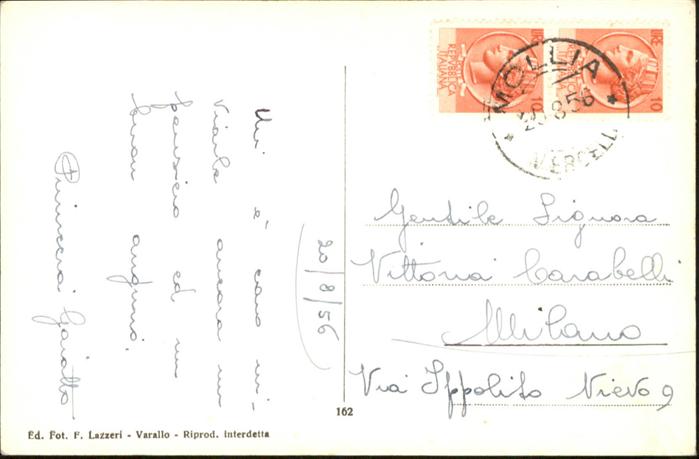 20/8/56
Mi è caro in-
viarLe ancora un
pensiero ed un
buon augurio.
REPVBBLICA
ITALIANA
LIRE
10
LIRE
10
MOLLIA
20.8.56
VERCELLI
Gentile Signora
Vittoria Carabelli
Milano
Via Ippolito Nievo 9
162
Ed. Fot. F. Lazzeri - Varallo - Riprod. Interdetta